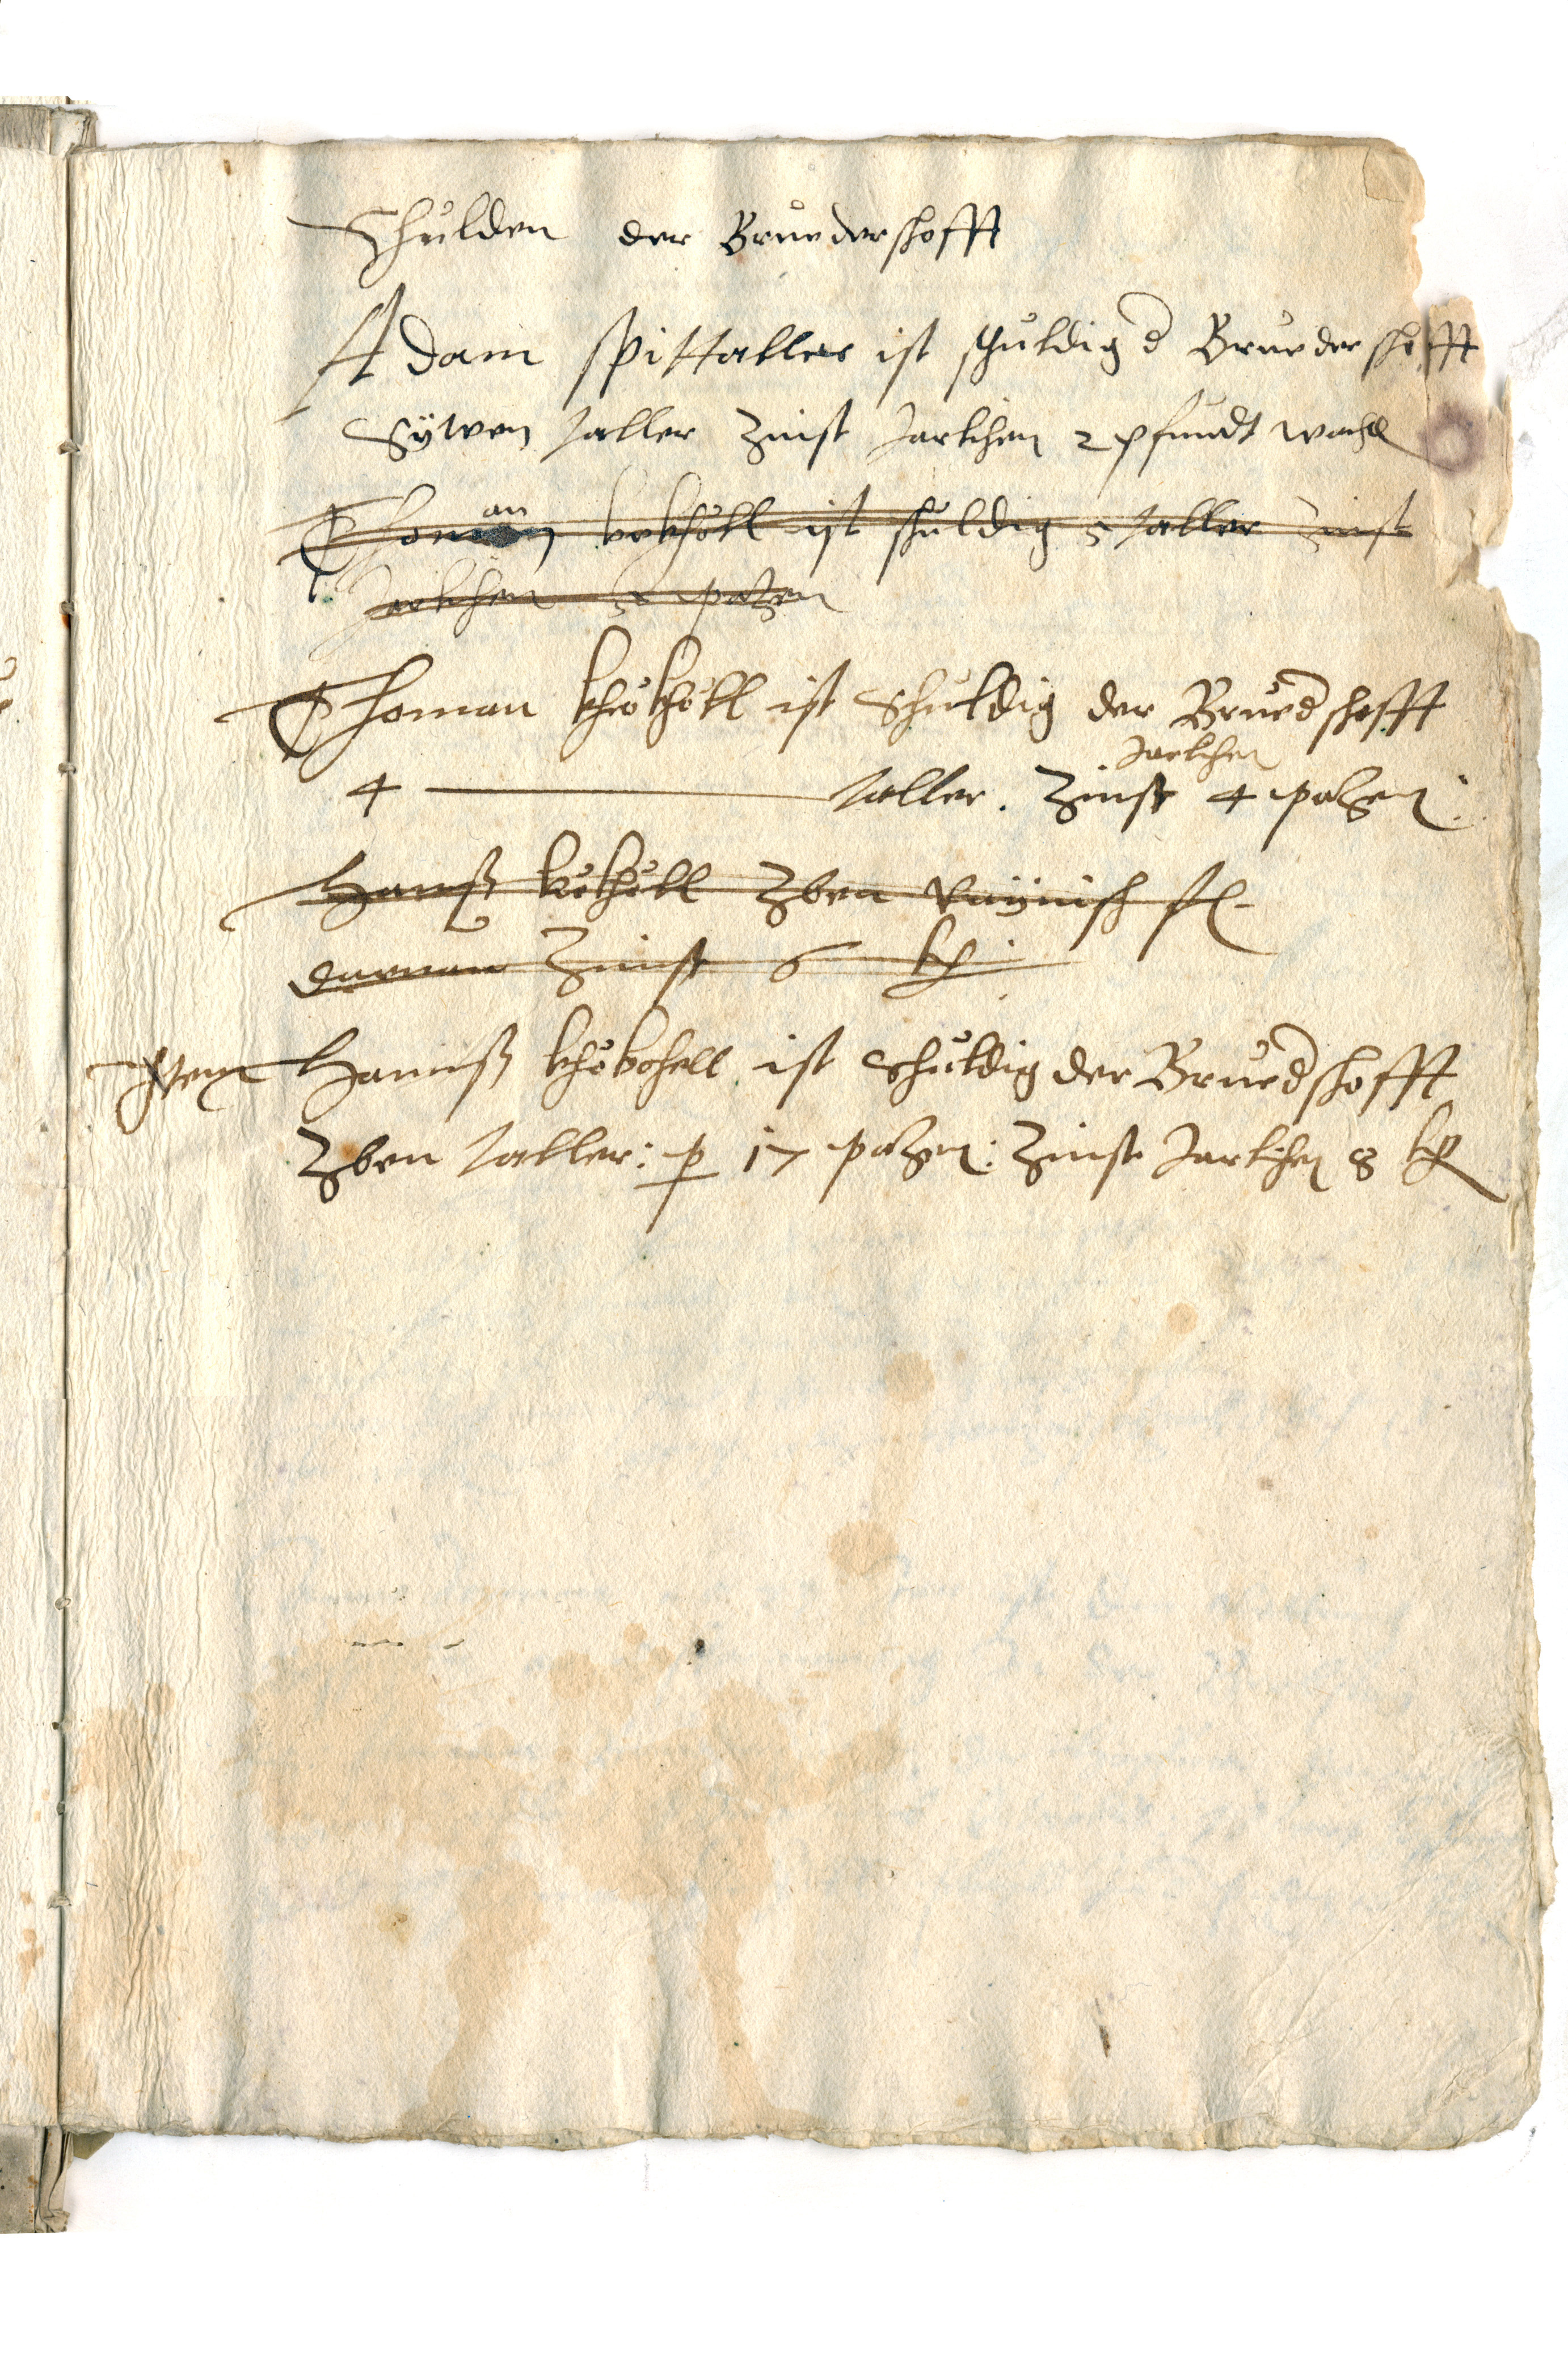 Schulden der Bruederschofft
Adam Spittaller ist schuldig d Bruederschofft
Sÿwen taller Zinst Jarlichen 2 pfundt wachs
Thoman kokhöll ist schuldig 5 taller Zinst
Jarlichen 5 patzen
Thoman khökhöll ist Schuldig der Bruedschofft
4 ——— taller. Zinst Jarlichen 4 patzen:
Hanß kökhöll Zben Reÿnisch fl
daruan Zinst 6 kr
Item Hannß khökchell ist Schuldig der Bruedschofft
Zben taller: p 17 patzen: Zinst Jarlichen 8 kr